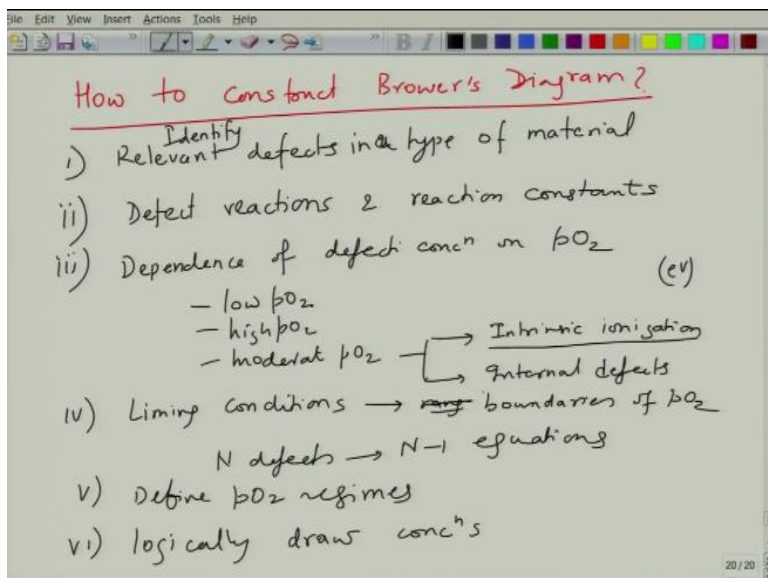 File Edit View Insert Actions Tools Help
B I
How to construct Brower's Diagram?
Identify
i) Relevant defects in a type of material
ii) Defect reactions & reaction constants
iii) Dependence of defect concⁿ on pO₂
(eV)
– low pO₂
– high pO₂
– moderat pO₂ → Intrinsic ionisation
→ Internal defects
iv) Liming conditions → boundaries of pO₂
N defects → N-1 equations
v) Define pO₂ regimes
vi) logically draw concⁿs
20/20